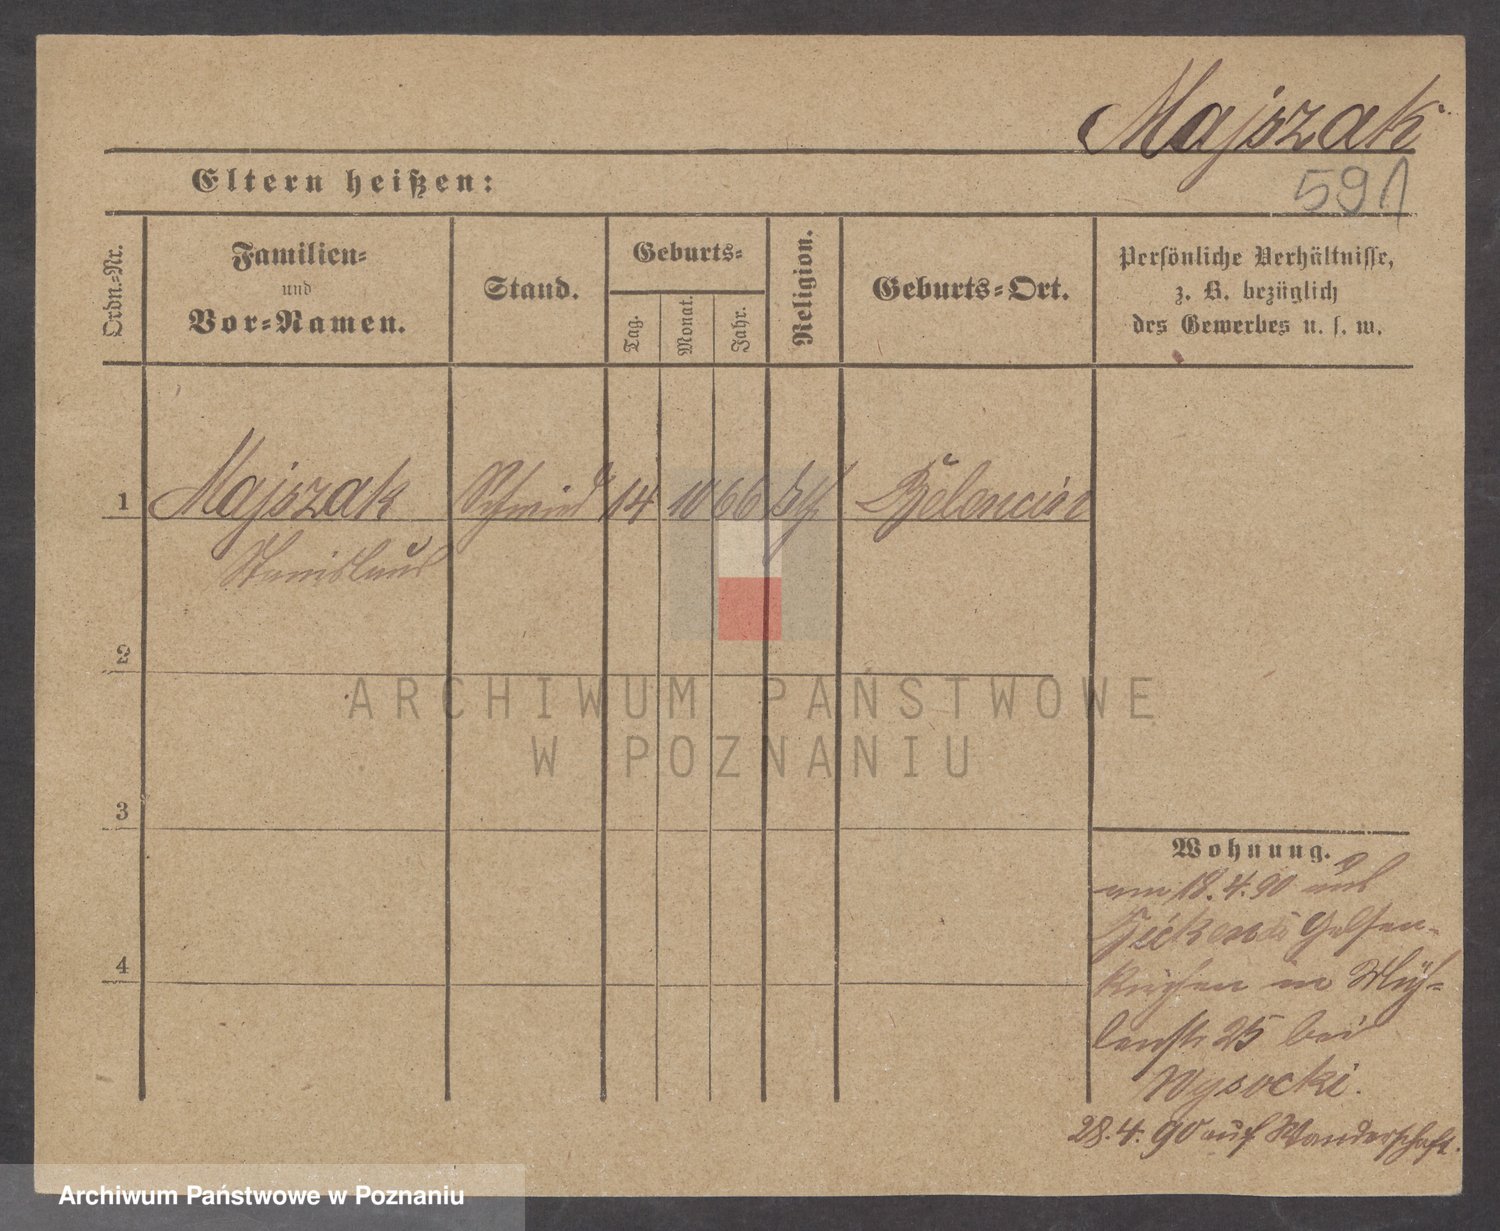 Majszak
Eltern heißen:
591
Ordn.=Nr.
Familien=
und
Vor=Namen.
Stand.
Geburts=
Tag.
Monat.
Jahr.
Religion.
Geburts=Ort.
Persönliche Verhältnisse,
z. B. bezüglich
des Gewerbes u. s. w.
1 Majszak Schmied 14 10 66 kth
Stanislaus
2
3
4
Wohnung.
am 18.4.90 aus
Gelsen-
kirchen in Müh-
lenstr 25 bei
Wysocki.
28.4.90 auf Wanderschaft.
ARCHIWUM PAŃSTWOWE
W POZNANIU
Archiwum Państwowe w Poznaniu